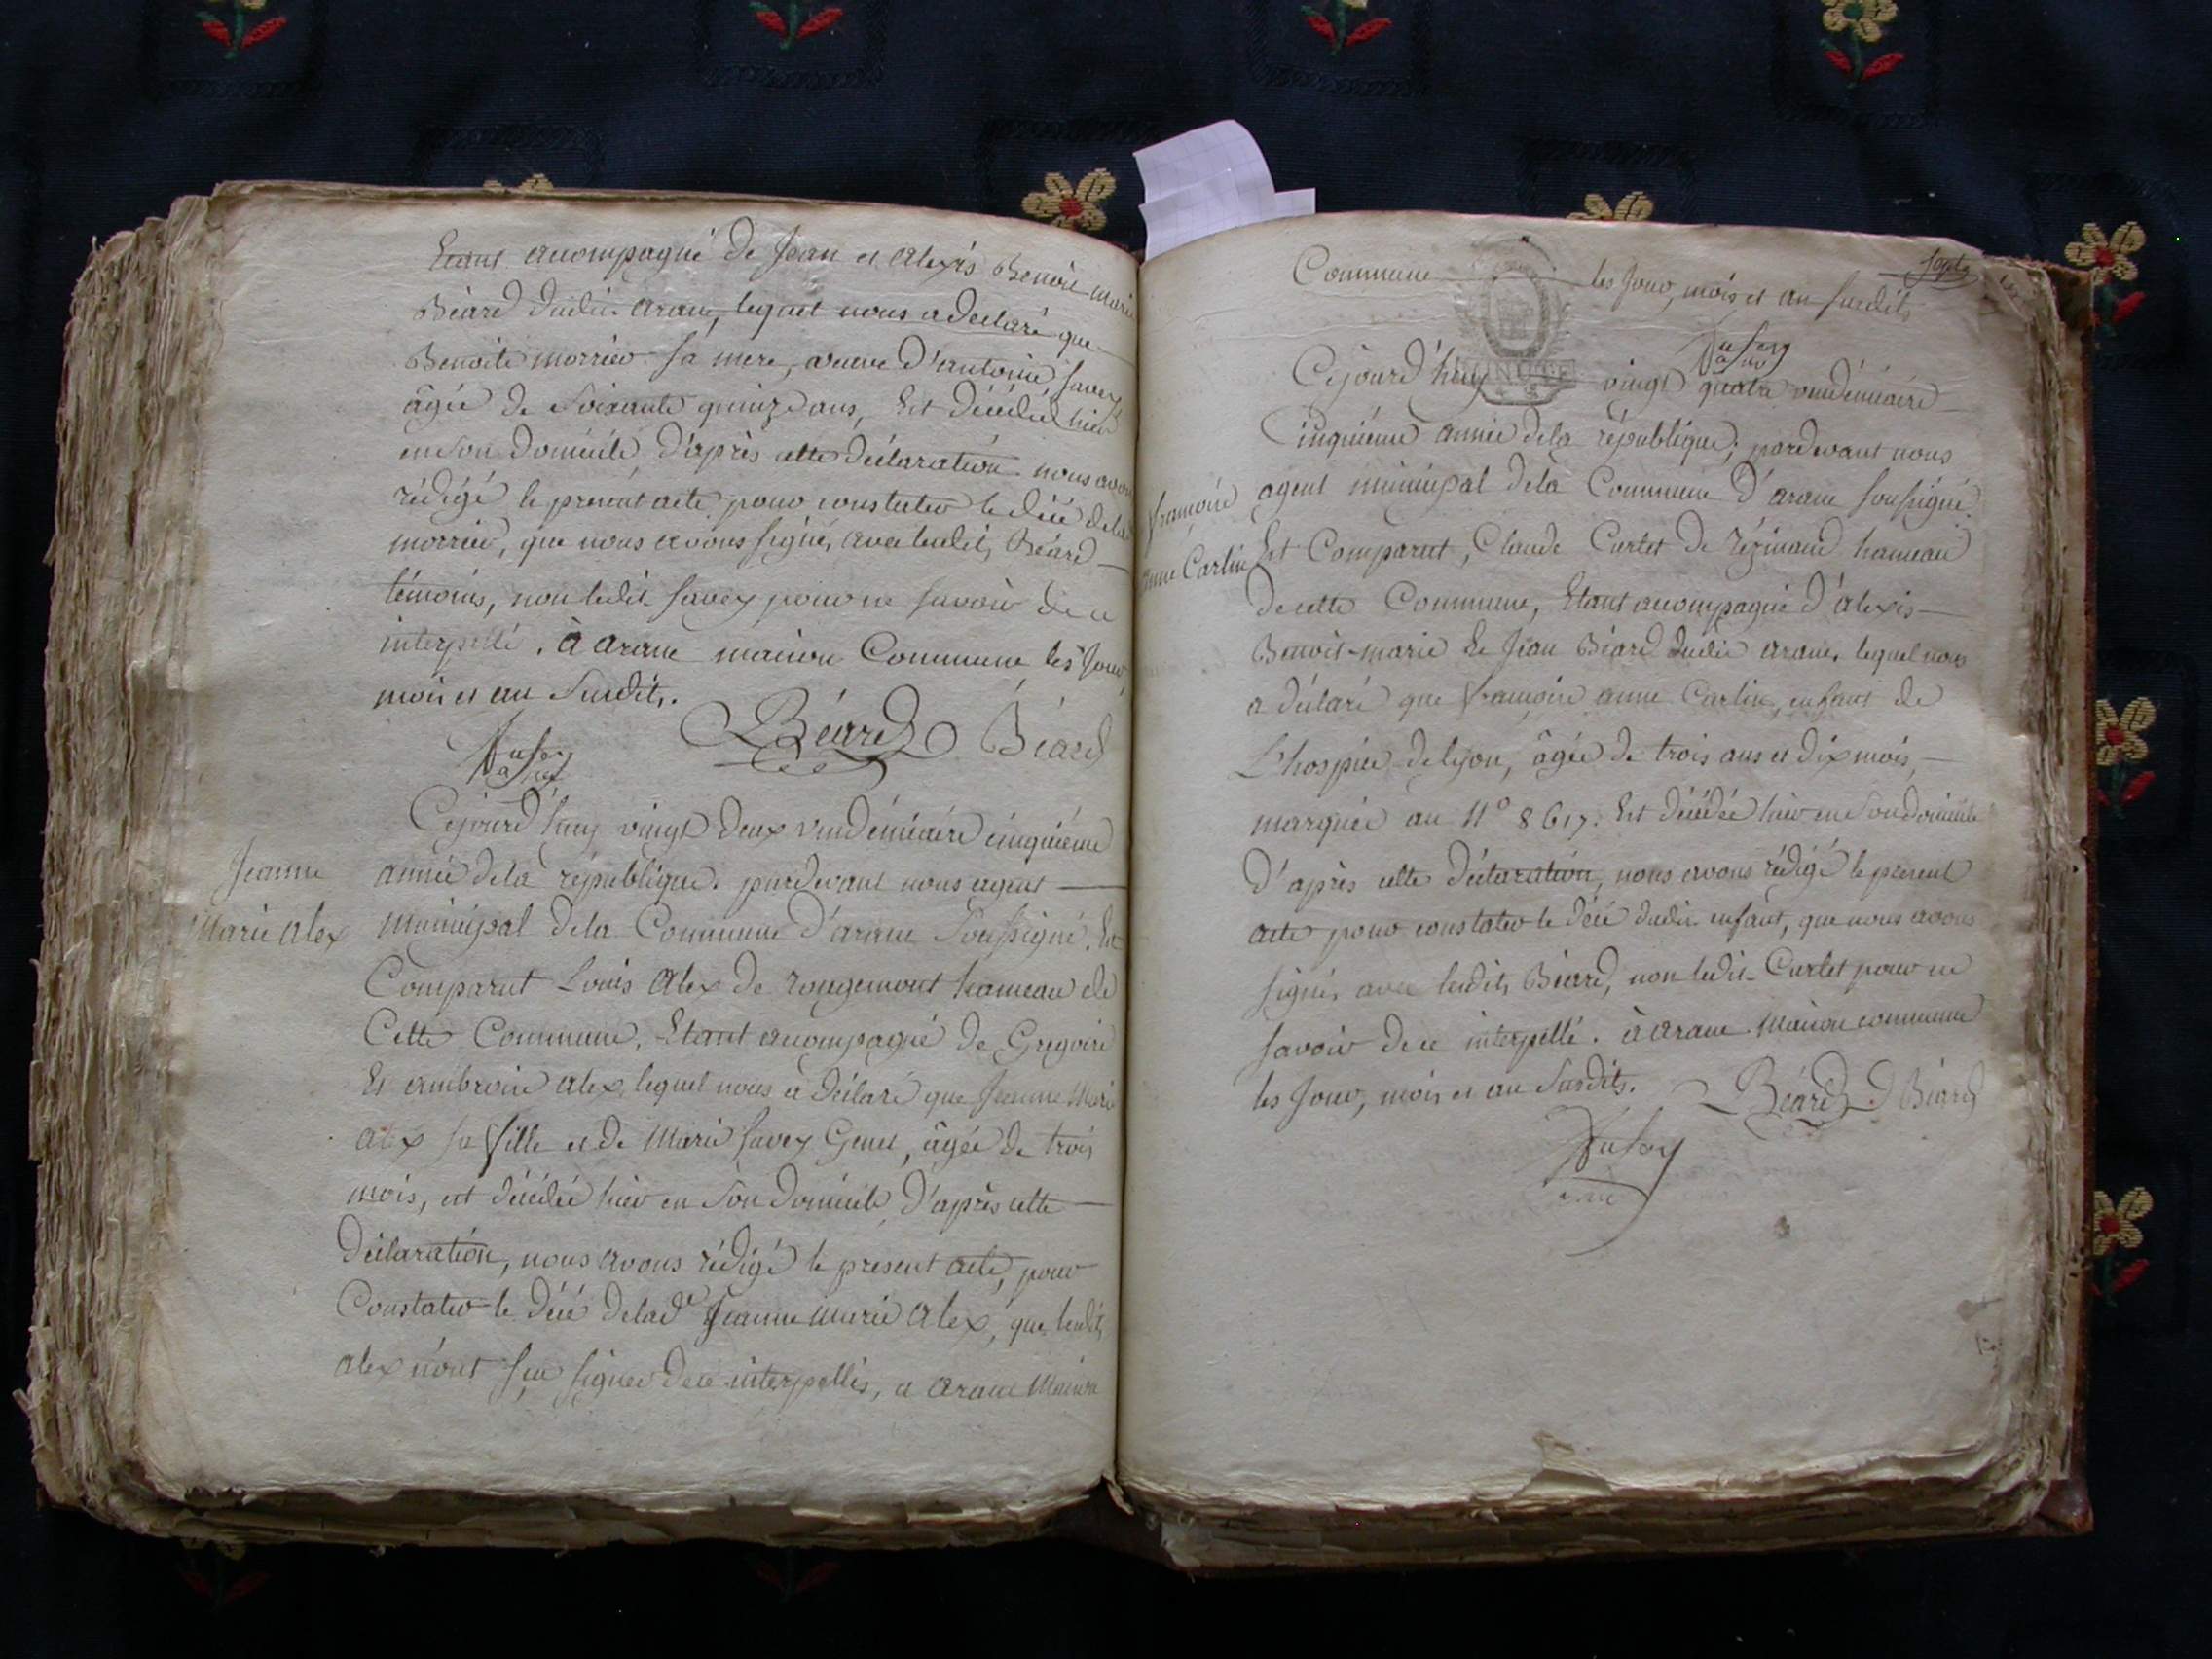 Etant acompagné de Jean et alexis Benoit marie
Béard dudit arane, lequel nous a déclaré que
Benoite morrier sa mere, veuve d'antoine savey
âgée de soixante quinze ans, Est décédée hier
en son domicile, d'après cette déclaration nous avons
rédigé le present acte pour constater le décé de la
morrier, que nous avons signé, avec lesdits Béard
témoins, non ledit savey pour ne savoir de ce
interpellé. à arane maison Commune, les jour,
mois et an susdits.
Béard Béard
Cejourd'huy vingt deux vendémiaire cinquième
Jeanne
Marie alex
année de la république. pardevant nous agent
municipal de la Commune d'arane soussigné. Est
Comparut Louis alex de rougemont hameau de
Cette Commune, Etant acompagné de Gregoire
Et ambroise alex, lequel nous a déclaré que Jeanne Marie
alex sa fille et de Marie savey Genet, âgée de trois
mois, est décédée hier en son domicile, d'après cette
déclaration, nous avons rédigé le present acte, pour
Constater le décé de lad.e Jeanne Marie alex, que lesdits
alex n'ont sçu signer de ce interpellés, a arane Maison
Commune les jour, mois et an susdits
Cejourd'huy vingt quatre vendémiaire
Cinquième année de la république, pardevant nous
françoise
anne Carlin
agent municipal de la Commune d'arane soussigné.
Est Comparut, Claude Curtet de rézinand hameau
de cette Commune, Etant acompagné d'alexis
Benoit-marie Et Jean Béard dudit arane, lequel nous
a déclaré que françoise anne Carlin, enfant de
L'hospice de lyon, âgée de trois ans et dix mois,
marquée au N° 8617. Est décédée hier en son domicile
d'après cette déclaration, nous avons rédigé le present
acte pour constater le décé dudit enfant, que nous avons
signés avec lesdits Béard, non ledit Curtet pour ne
savoir de ce interpellé. à arane Maison commune
les jour, mois et an susdits.
Béard Béard